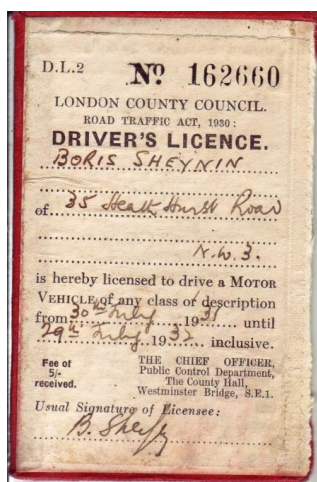 D.L.2 No 162660
LONDON COUNTY COUNCIL.
ROAD TRAFFIC ACT, 1930:
DRIVER'S LICENCE.
BORIS SHEYNIN
of 35 Heath Hurst Road
N.W.3.
is hereby licensed to drive a MOTOR
VEHICLE of any class or description
from 30th July 1931 until
29th July 1932 inclusive.
Fee of
5/-
received.
THE CHIEF OFFICER,
Public Control Department,
The County Hall,
Westminster Bridge, S.E.1.
Usual Signature of Licensee:
B. Sheynin